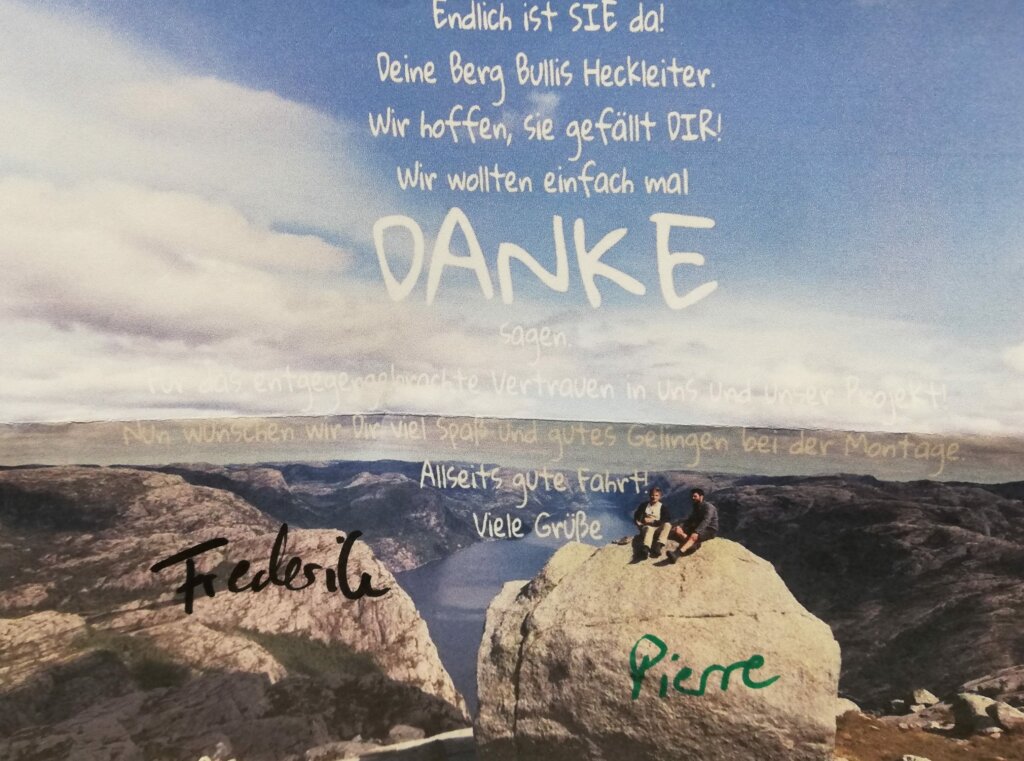 Endlich ist SIE da!
Deine Berg Bullis Heckleiter.
Wir hoffen, sie gefällt DIR!
Wir wollten einfach mal
DANKE
sagen.
für das entgegengebrachte Vertrauen in uns und unser Projekt!
Nun wünschen wir Dir viel Spaß und gutes Gelingen bei der Montage.
Allseits gute Fahrt!
Viele Grüße
Frederik
Pierre